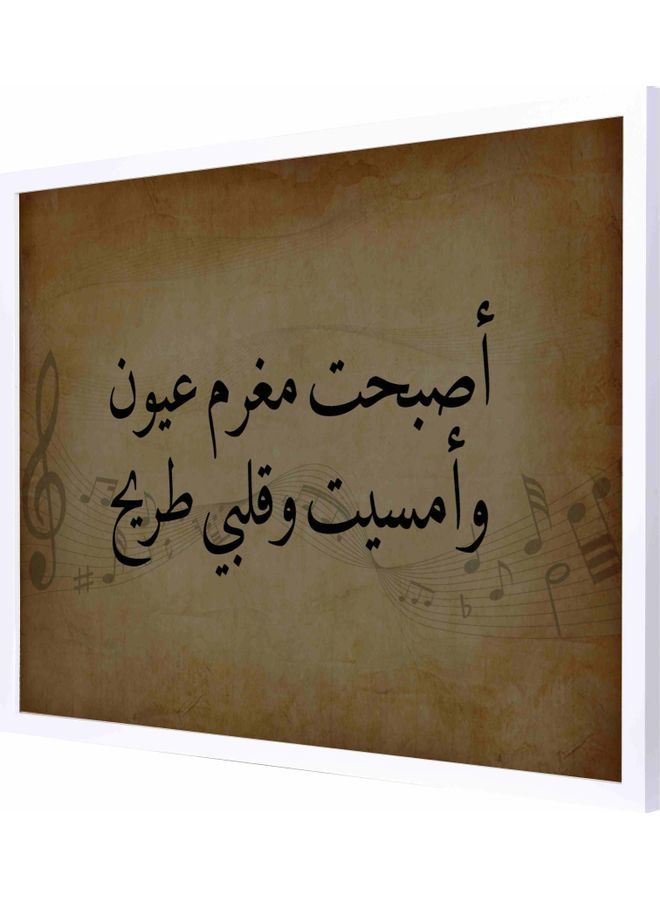 أصبحت مغرم عيون
وأمسيت وقلبي طريح